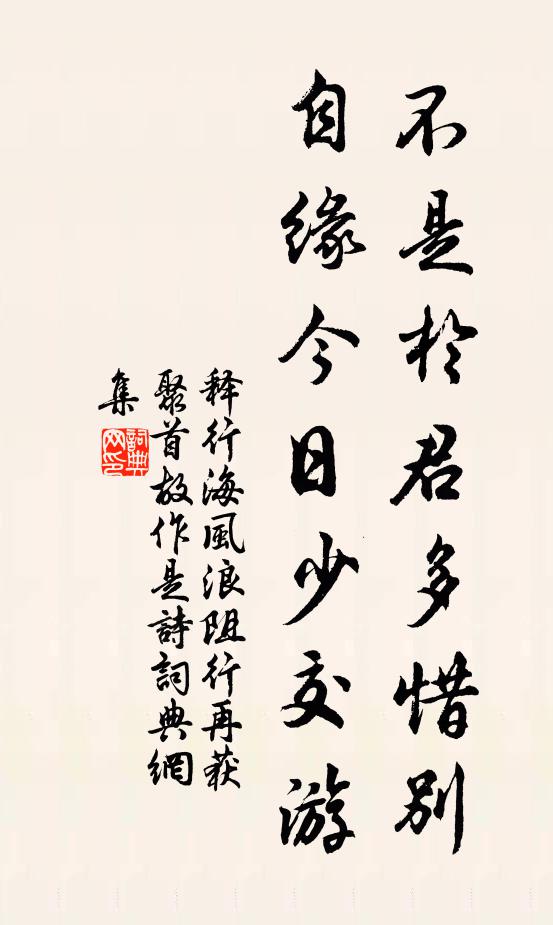 不是於君多惜別
自緣今日少交游
释行海風浪阻行再获
聚首故作是詩詞典網
集
詞典
网印